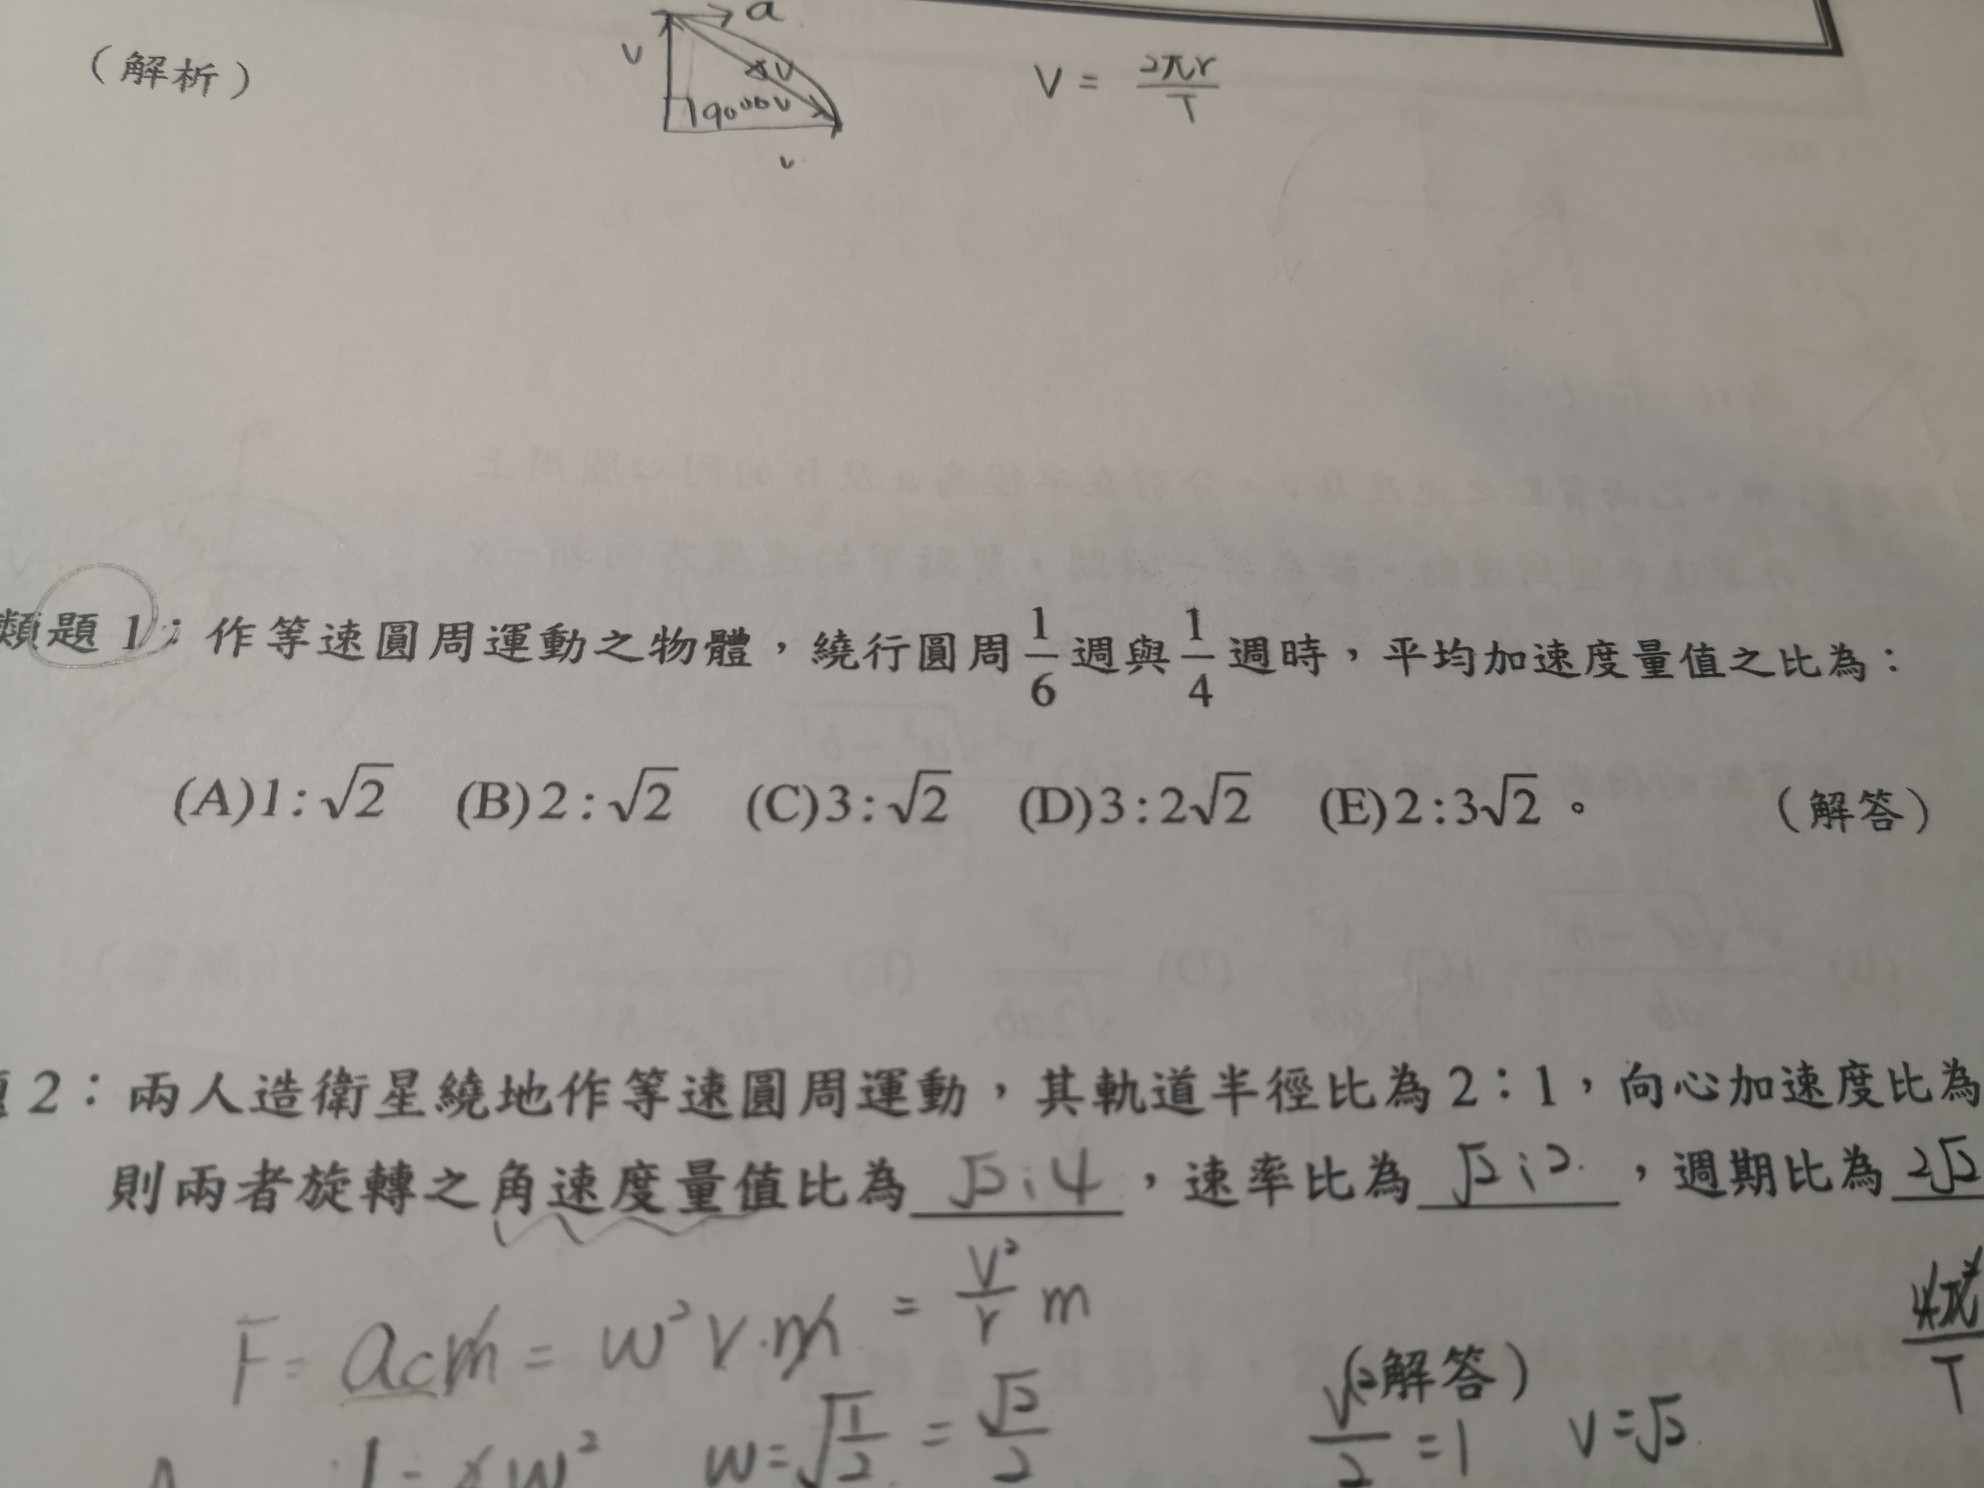 a
(解析) v Δv v = 2πr/T
90°
v
類題 1：作等速圓周運動之物體，繞行圓周 1/6 週與 1/4 週時，平均加速度量值之比為：
(A)1:√2 (B)2:√2 (C)3:√2 (D)3:2√2 (E)2:3√2。 (解答)
2：兩人造衛星繞地作等速圓周運動，其軌道半徑比為 2：1，向心加速度比為
則兩者旋轉之角速度量值比為 √2:4 ，速率比為 √2:2 ，週期比為 2√2
F = acm = w²r·m = v²/r m
(解答)
w = √1/2 = √2/2 /2 = 1 v = √2